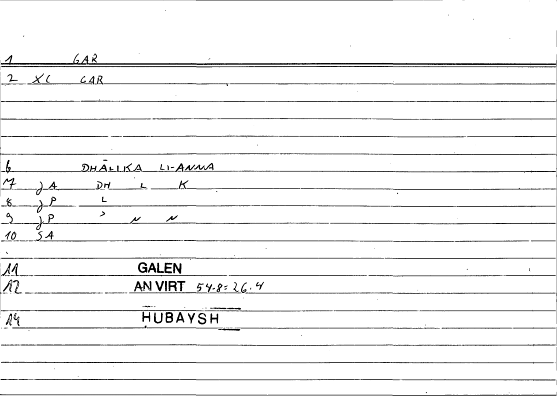 1 GAR
2 XC GAR
6 DHĀLIKA LI-ANNA
7 JA DH L K
8 JP L
9 JP ' N N
10 SA
11 GALEN
12 AN VIRT 54.8=26.4
14 HUBAYSH